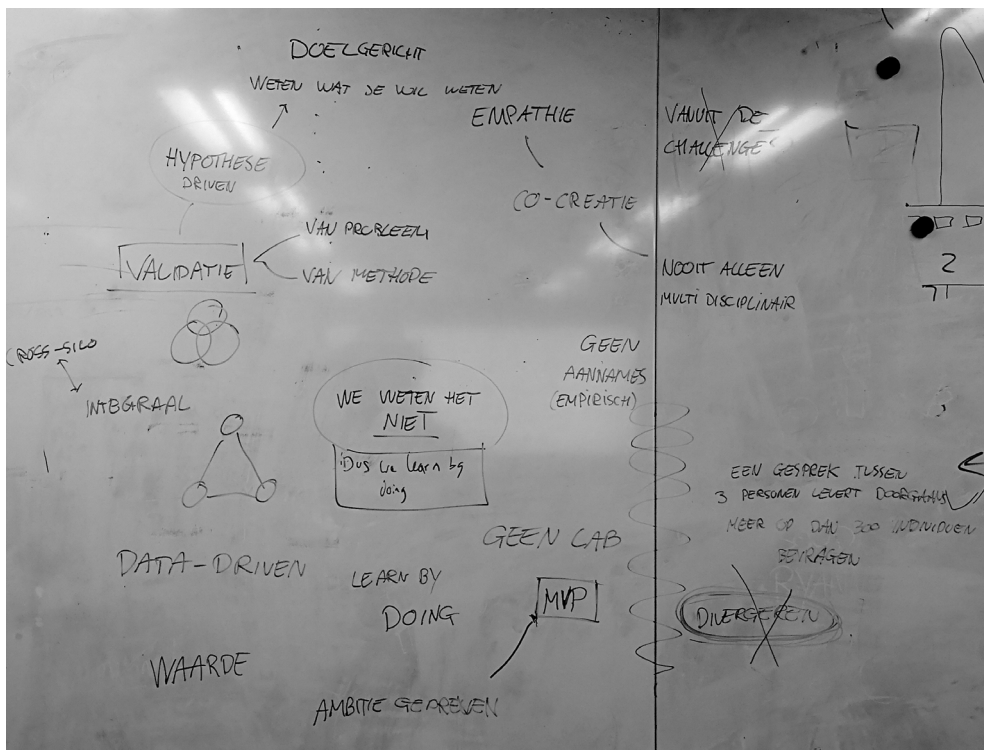 DOELGERICHT
WETEN WAT JE WIL WETEN
HYPOTHESE
DRIVEN
VALIDATIE
VAN PROBLEEM
VAN METHODE
EMPATHIE
CO-CREATIE
CROSS-SILO
INTEGRAAL
WE WETEN HET
NIET
Dus we learn by
doing
GEEN
AANNAMES
(EMPIRISCH)
DATA-DRIVEN
LEARN BY
DOING
GEEN LAB
MVP
WAARDE
AMBITIE GEDREVEN
VANUIT DE
CHALLENGE
NOOIT ALLEEN
MULTI DISCIPLINAIR
2
EEN GESPREK TUSSEN
3 PERSONEN LEVERT DOORGAANS
MEER OP DAN 300 INDIVIDUEN
BEIRAGEN
DIVERGEREN